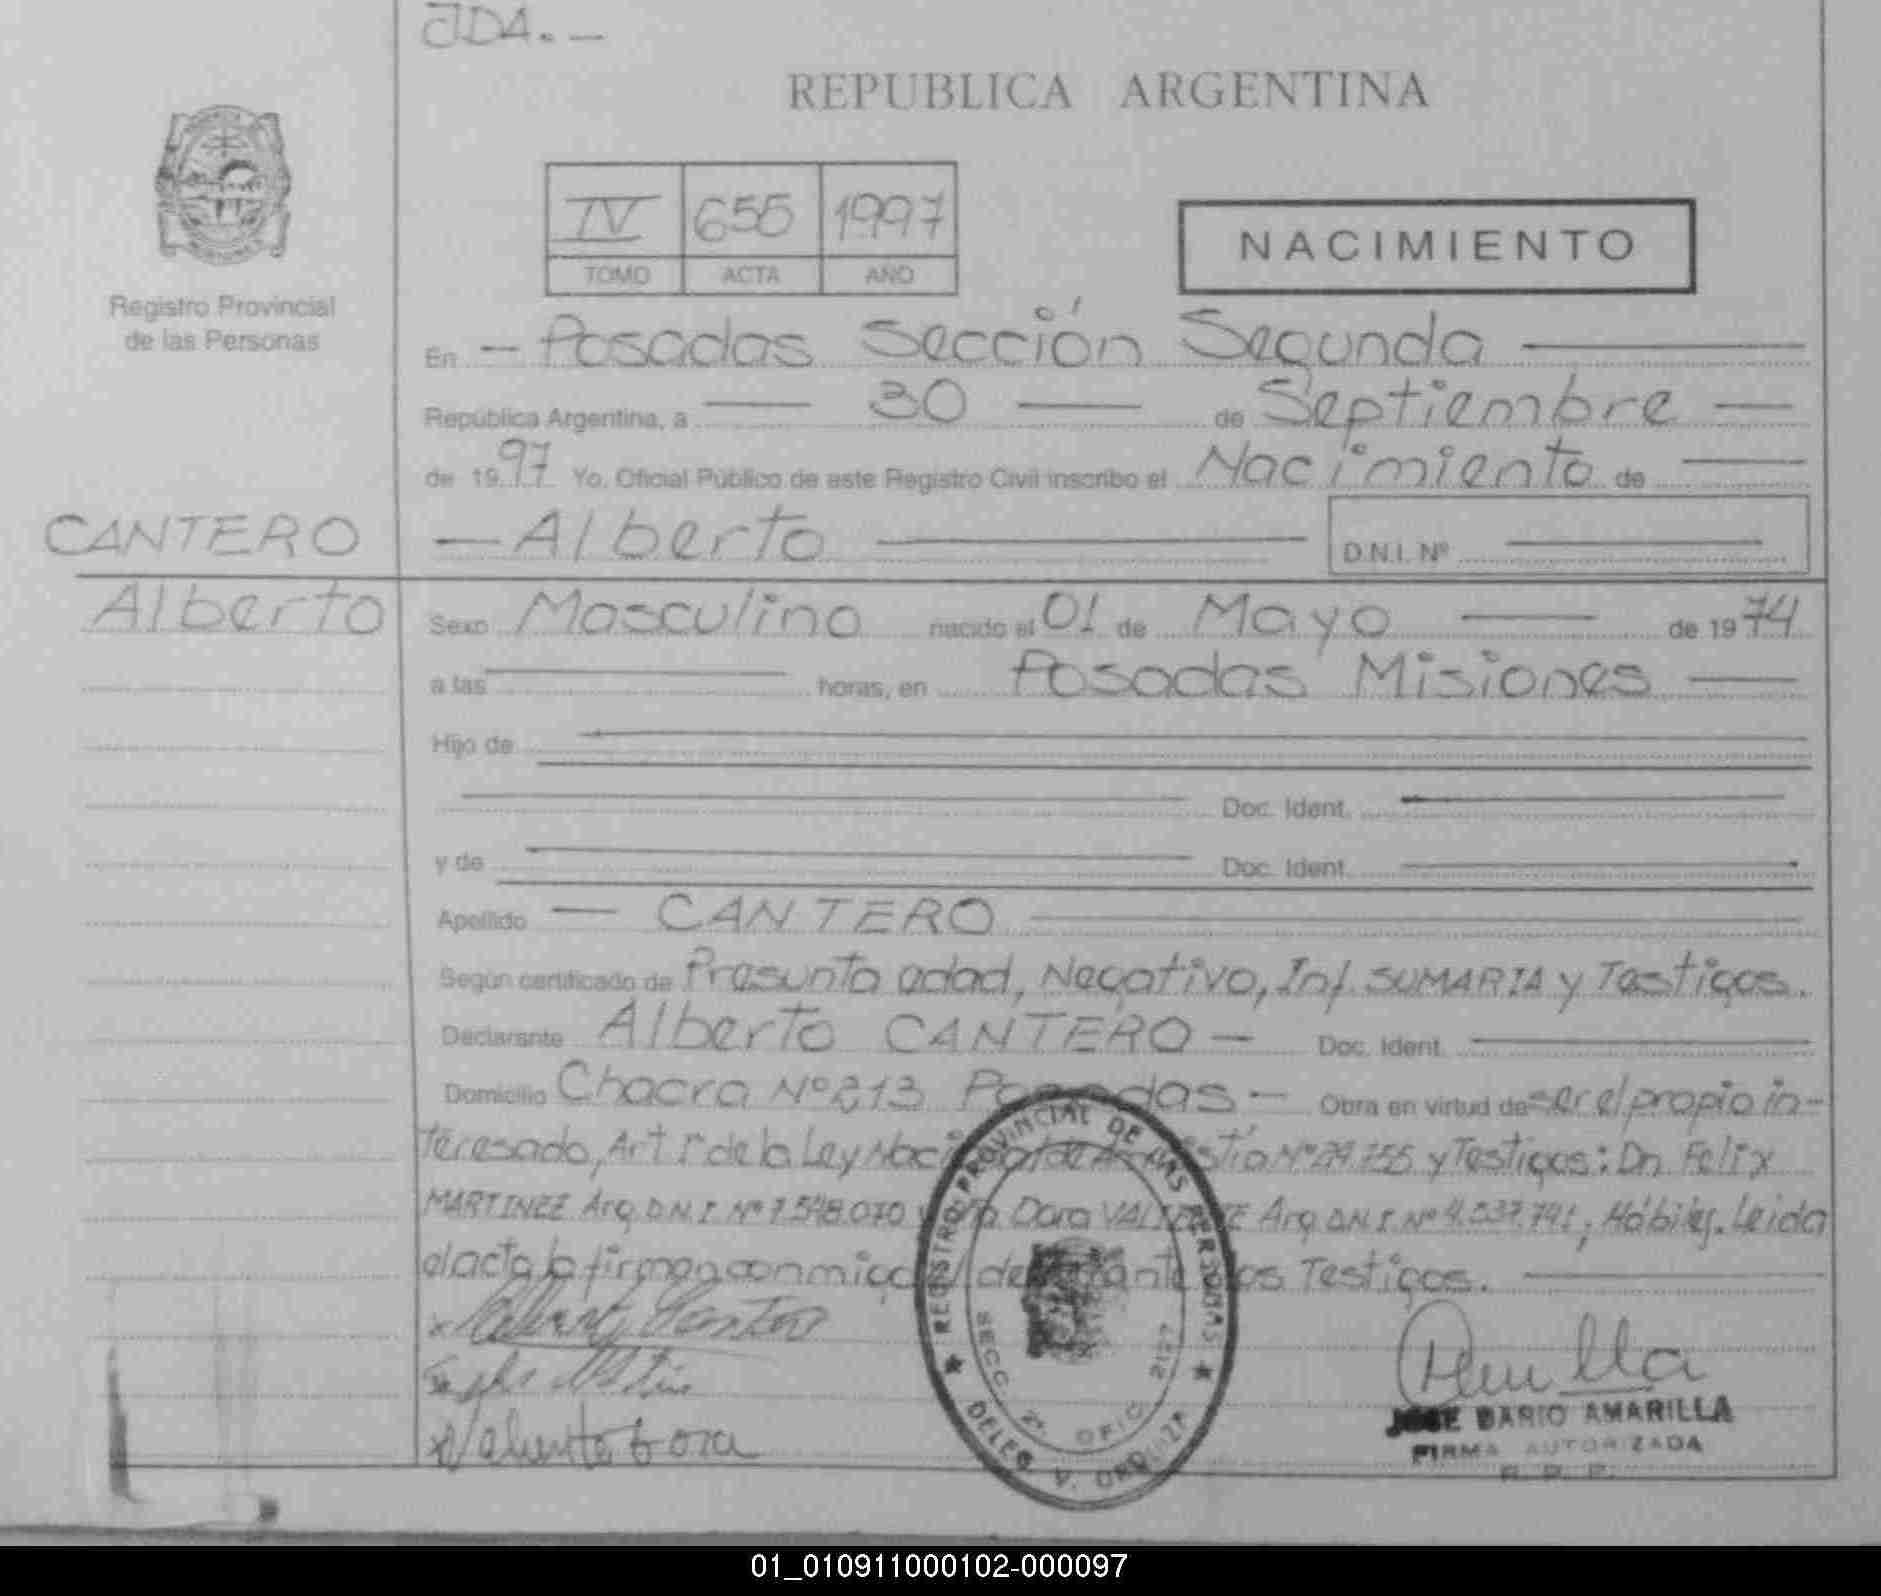 JDA. —
REPUBLICA ARGENTINA
IV 655 1997
TOMO ACTA AÑO
NACIMIENTO
Registro Provincial
de las Personas
En — Posadas Sección Segunda
República Argentina, a 30 de Septiembre
de 1997 Yo, Oficial Público de este Registro Civil inscribo el Nacimiento de
CANTERO
— Alberto
D.N.I. Nº
Alberto
Sexo Masculino nacido el 01 de Mayo de 1974
a las horas, en Posadas Misiones
Hijo de
Doc. Ident.
y de Doc. Ident.
Apellido — CANTERO
Según certificado de Presunta edad, Negativo, Inf. SUMARIA y Testigos.
Declarante Alberto CANTERO — Doc. Ident.
Domicilio Chacra Nº 213 Posadas — Obra en virtud de ser el propio in-
teresado, Art 1º de la Ley Nac de Nº y Testigos: Dn Felix
MARTINEZ Arg. D.N.I. Nº 7.548.070 y Dora VALIENTE Arg. D.N.I. Nº Hábiles. Leida
el acta la firman conmigo el declarante y los Testigos.
REGISTRO PROVINCIAL DE LAS PERSONAS
SECC. 2ª OFIC. 2127
DELEG V. URQUIZA
Valiente Dora
JOSE DARIO AMARILLA
FIRMA AUTORIZADA
R. P. P.
01_010911000102-000097